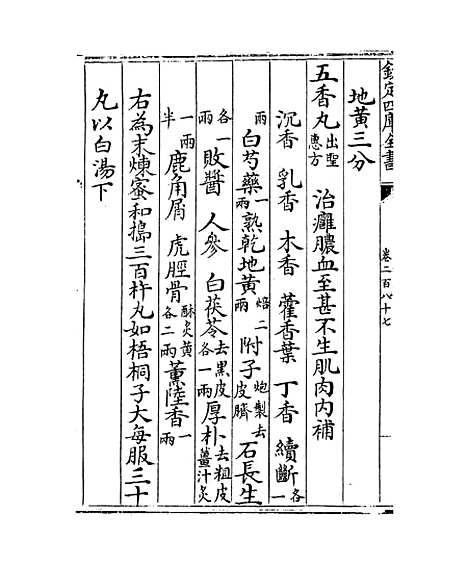 欽定四庫全書
卷二百八十七
地黄三分
五香丸出聖惠方 治癰膿血至甚不生肌肉内補
沉香 乳香 木香 藿香葉 丁香 續斷各一
兩 白芍藥一兩 熟乾地黄焙二兩 附子炮製去皮臍 石長生
各一兩 敗醬 人參 白茯苓去黑皮各一兩 厚朴去粗皮薑汁炙
一兩半 鹿角屑 虎脛骨酥炙黄各二兩 薫陸香一兩
右為末煉蜜和搗三百杵丸如梧桐子大每服三十
丸以白湯下